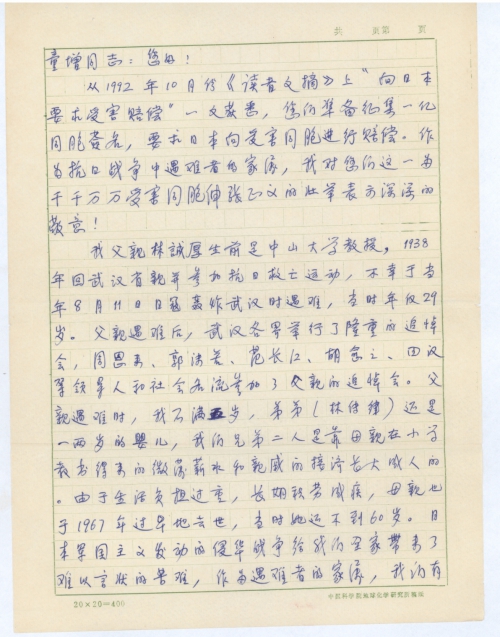 共 页 第 页
童增同志：您好！
从1992年10月份《读者文摘》上“向日本
要求受害赔偿”一文获悉，您们准备征集一亿
同胞签名，要求日本向受害同胞进行赔偿。作
为抗日战争中遇难者的家属，我对您们这一为
千千万万受害同胞伸张正义的壮举表示深深的
敬意！
我父亲林诚厚生前是中山大学教授，1938
年回武汉省亲并参加抗日救亡运动，不幸于当
年8月11日日寇轰炸武汉时遇难，当时年仅29
岁。父亲遇难后，武汉各界举行了隆重的追悼
会，周恩来、郭沫若、范长江、胡愈之、田汉
等领导人和社会名流参加了父亲的追悼会。父
亲遇难时，我不满五岁，弟弟（林）还是
一两岁的婴儿，我们兄弟二人是靠母亲在小学
教书得来的微薄薪水和亲戚的接济长大成人的
。由于生活负担过重，长期积劳成疾，母亲也
于1967年过早地去世，当时她还不到60岁。日
本军国主义发动的侵华战争给我们全家带来了
难以言状的苦难，作为遇难者的家属，我们有
20×20=400
中国科学院地球化学研究所稿纸